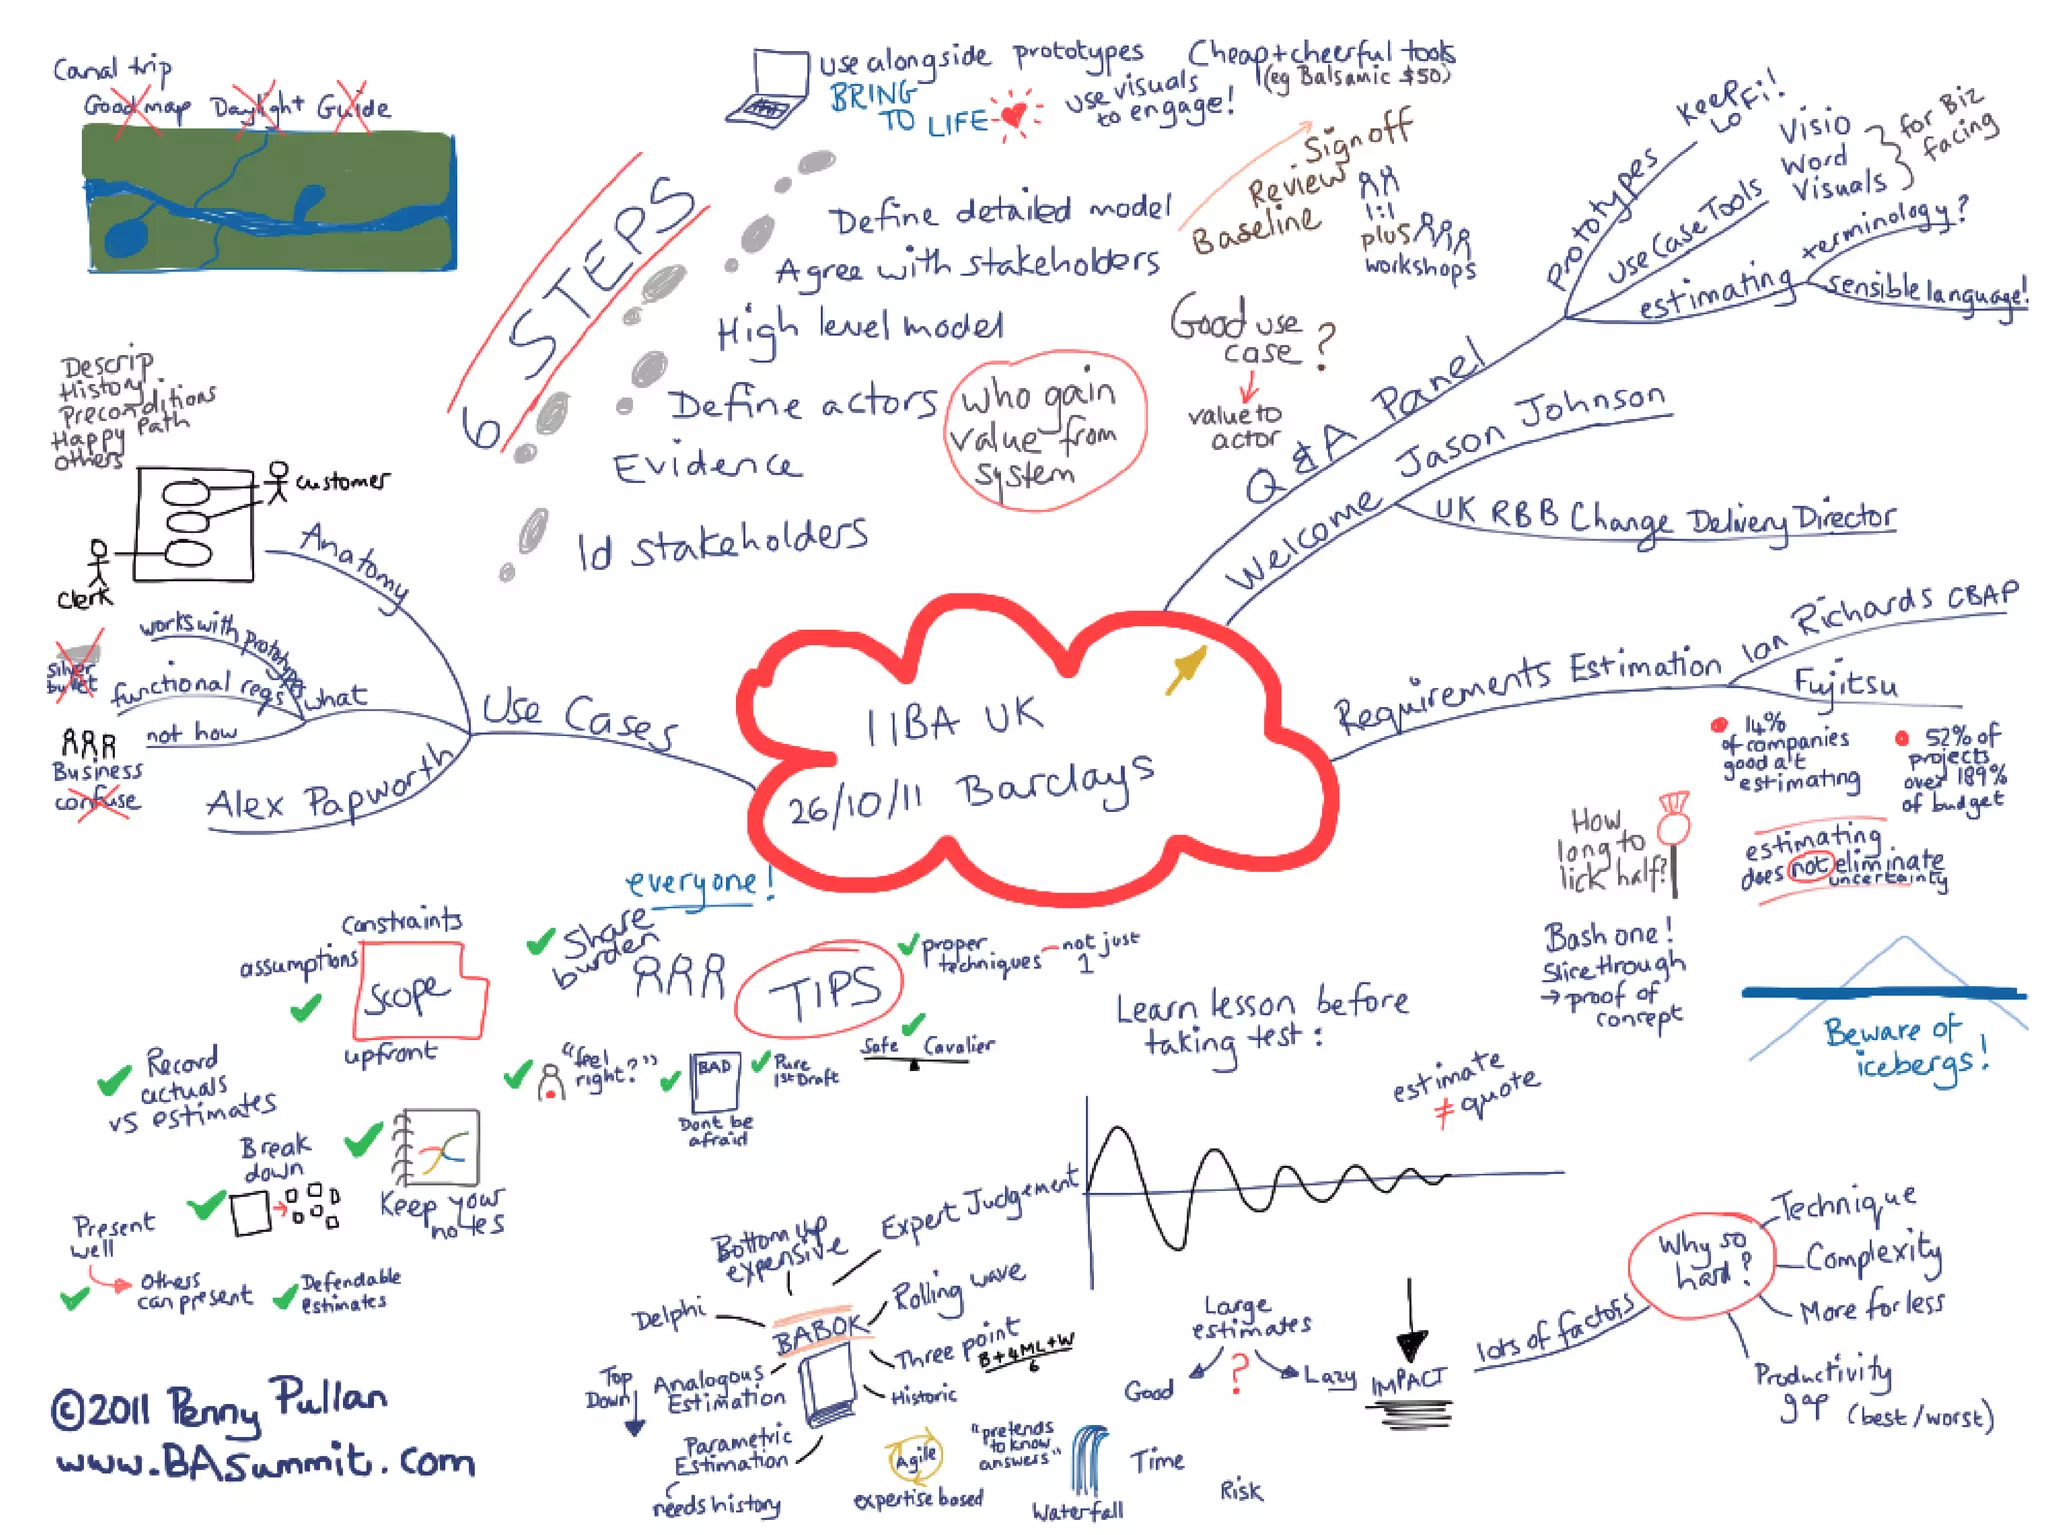 Canal trip
Good map Daylight Guide
use alongside prototypes Cheap+cheerful tools
(eg Balsamic $50)
BRING
TO LIFE
use visuals
to engage!
6 STEPS
Define detailed model
Agree with stakeholders
High level model
Define actors
Evidence
Id stakeholders
who gain
value from
system
Sign off
Review
Baseline
1:1
plus
workshops
Good use
case?
value to
actor
Q & A Panel
prototypes
Keep
Lo Fi!
Use Case Tools
Visio
Word
Visuals
for Biz
facing
estimating
terminology?
sensible language!
Welcome Jason Johnson
UK RBB Change Delivery Director
Descrip
History
Preconditions
Happy Path
others
customer
Clerk
Anatomy
works with prototypes
functional reqs
not how
what
silver
bullet
Business
confuse
Alex Papworth
Use Cases
IIBA UK
26/10/11 Barclays
Requirements Estimation
Ian Richards CBAP
Fujitsu
14%
of companies
good at
estimating
52% of
projects
over 189%
of budget
How
long to
lick half?
estimating
does not eliminate
uncertainty
Bash one!
Slice through
→ proof of
concept
Beware of
icebergs!
everyone!
Share
burden
TIPS
proper
techniques
not just
1
constraints
assumptions
Scope
upfront
"feel
right?"
BAD
Dont be
afraid
Pure
1st Draft
Safe Cavalier
Record
actuals
vs estimates
Break
down
Keep your
notes
Present
well
Others
can present
Defendable
estimates
Learn lesson before
taking test:
estimate
≠ quote
Bottom up
expensive
Expert Judgement
Delphi
BABOK
Rolling wave
Three point
B+4ML+W
6
Historic
Top
Down
Analogous
Estimation
Parametric
Estimation
needs history
Agile
expertise based
"pretends
to know
answers"
Waterfall
Large
estimates
?
Good
Lazy
Time
Risk
IMPACT
lots of factors
Why so
hard?
Technique
Complexity
More for less
Productivity
gap (best/worst)
©2011 Penny Pullan
www.BASummit.com